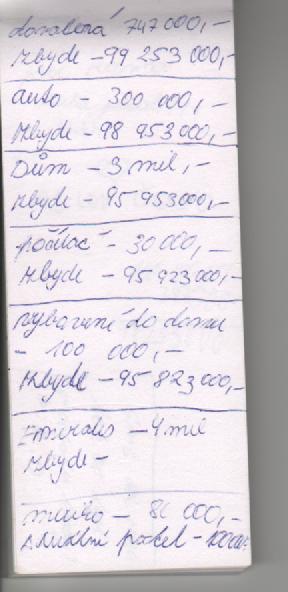 dovolená 747 000,-
Zbyde - 99 253 000,-
auto - 300 000,-
Zbyde - 98 953 000,-
Dům - 3 mil,-
zbyde - 95 953000,-
počítač - 30 000,-
Zbyde - 95 923 000,-
vybavení do domu
- 100 000,-
Zbyde - 95 823 000,-
Emirates - 4 mil
Zbyde -
000,-
Aktuální počet -